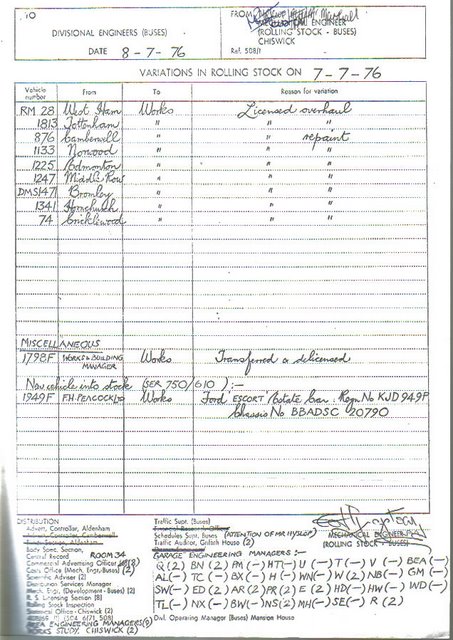 TO
DIVISIONAL ENGINEERS (BUSES)
DATE 8-7-76
FROM
MECHANICAL ENGINEER
(ROLLING STOCK - BUSES)
CHISWICK
Ref. 508/1
VARIATIONS IN ROLLING STOCK ON 7-7-76
Vehicle number From To Reason for variation
RM 28 West Ham Works Licensed overhaul
1813 Tottenham " " "
876 Camberwell " " repaint
1133 Norwood " " "
1225 Edmonton " " "
1247 Middle Row " " "
DMS 147 Bromley " " "
1341 Hornchurch " " "
74 Cricklewood " " "
MISCELLANEOUS
1798F WORKS & BUILDING MANAGER Works Transferred & delicensed
New vehicle into stock (SER 750/610) :-
1949F F.H. PEACOCK LTD Works Ford "ESCORT" Estate Car. Regn No KJD 949P
Chassis No BBADSC 20790
DISTRIBUTION
Advert. Controller, Aldenham
Advert. Controller, Camberwell
Body Spec. Section,
Central Record ROOM 34
Commercial Advertising Officer
Costs Office (Mech. Engr.-Buses) (2)
Scientific Adviser (2)
Distribution Services Manager
Mech. Engr. (Development - Buses) (2)
R. S. Licensing Section (8)
Rolling Stock Inspection
AREA ENGINEERING MANAGERS
WORKS STUDY, CHISWICK (2)
Traffic Supt. (Buses)
Schedules Supt. (Buses) (ATTENTION OF MR HYSLOP)
Traffic Auditor, Griffith House (2)
GARAGE ENGINEERING MANAGERS :-
Q(2) BN(2) PM(-) HT(-) U(-) T(-) V(-) BEA(-)
AL(-) TC(-) BX(-) H(-) WN(-) W(2) NB(-) GM(-)
SW(-) ED(2) AR(2) PR(2) E(2) HD(-) HW(-) WD(-)
TL(-) NX(-) BW(-) NS(2) MH(-) SE(-) R(2)
Divl. Operating Manager (Buses) Mansion House
MECHANICAL ENGINEER
(ROLLING STOCK - BUSES)